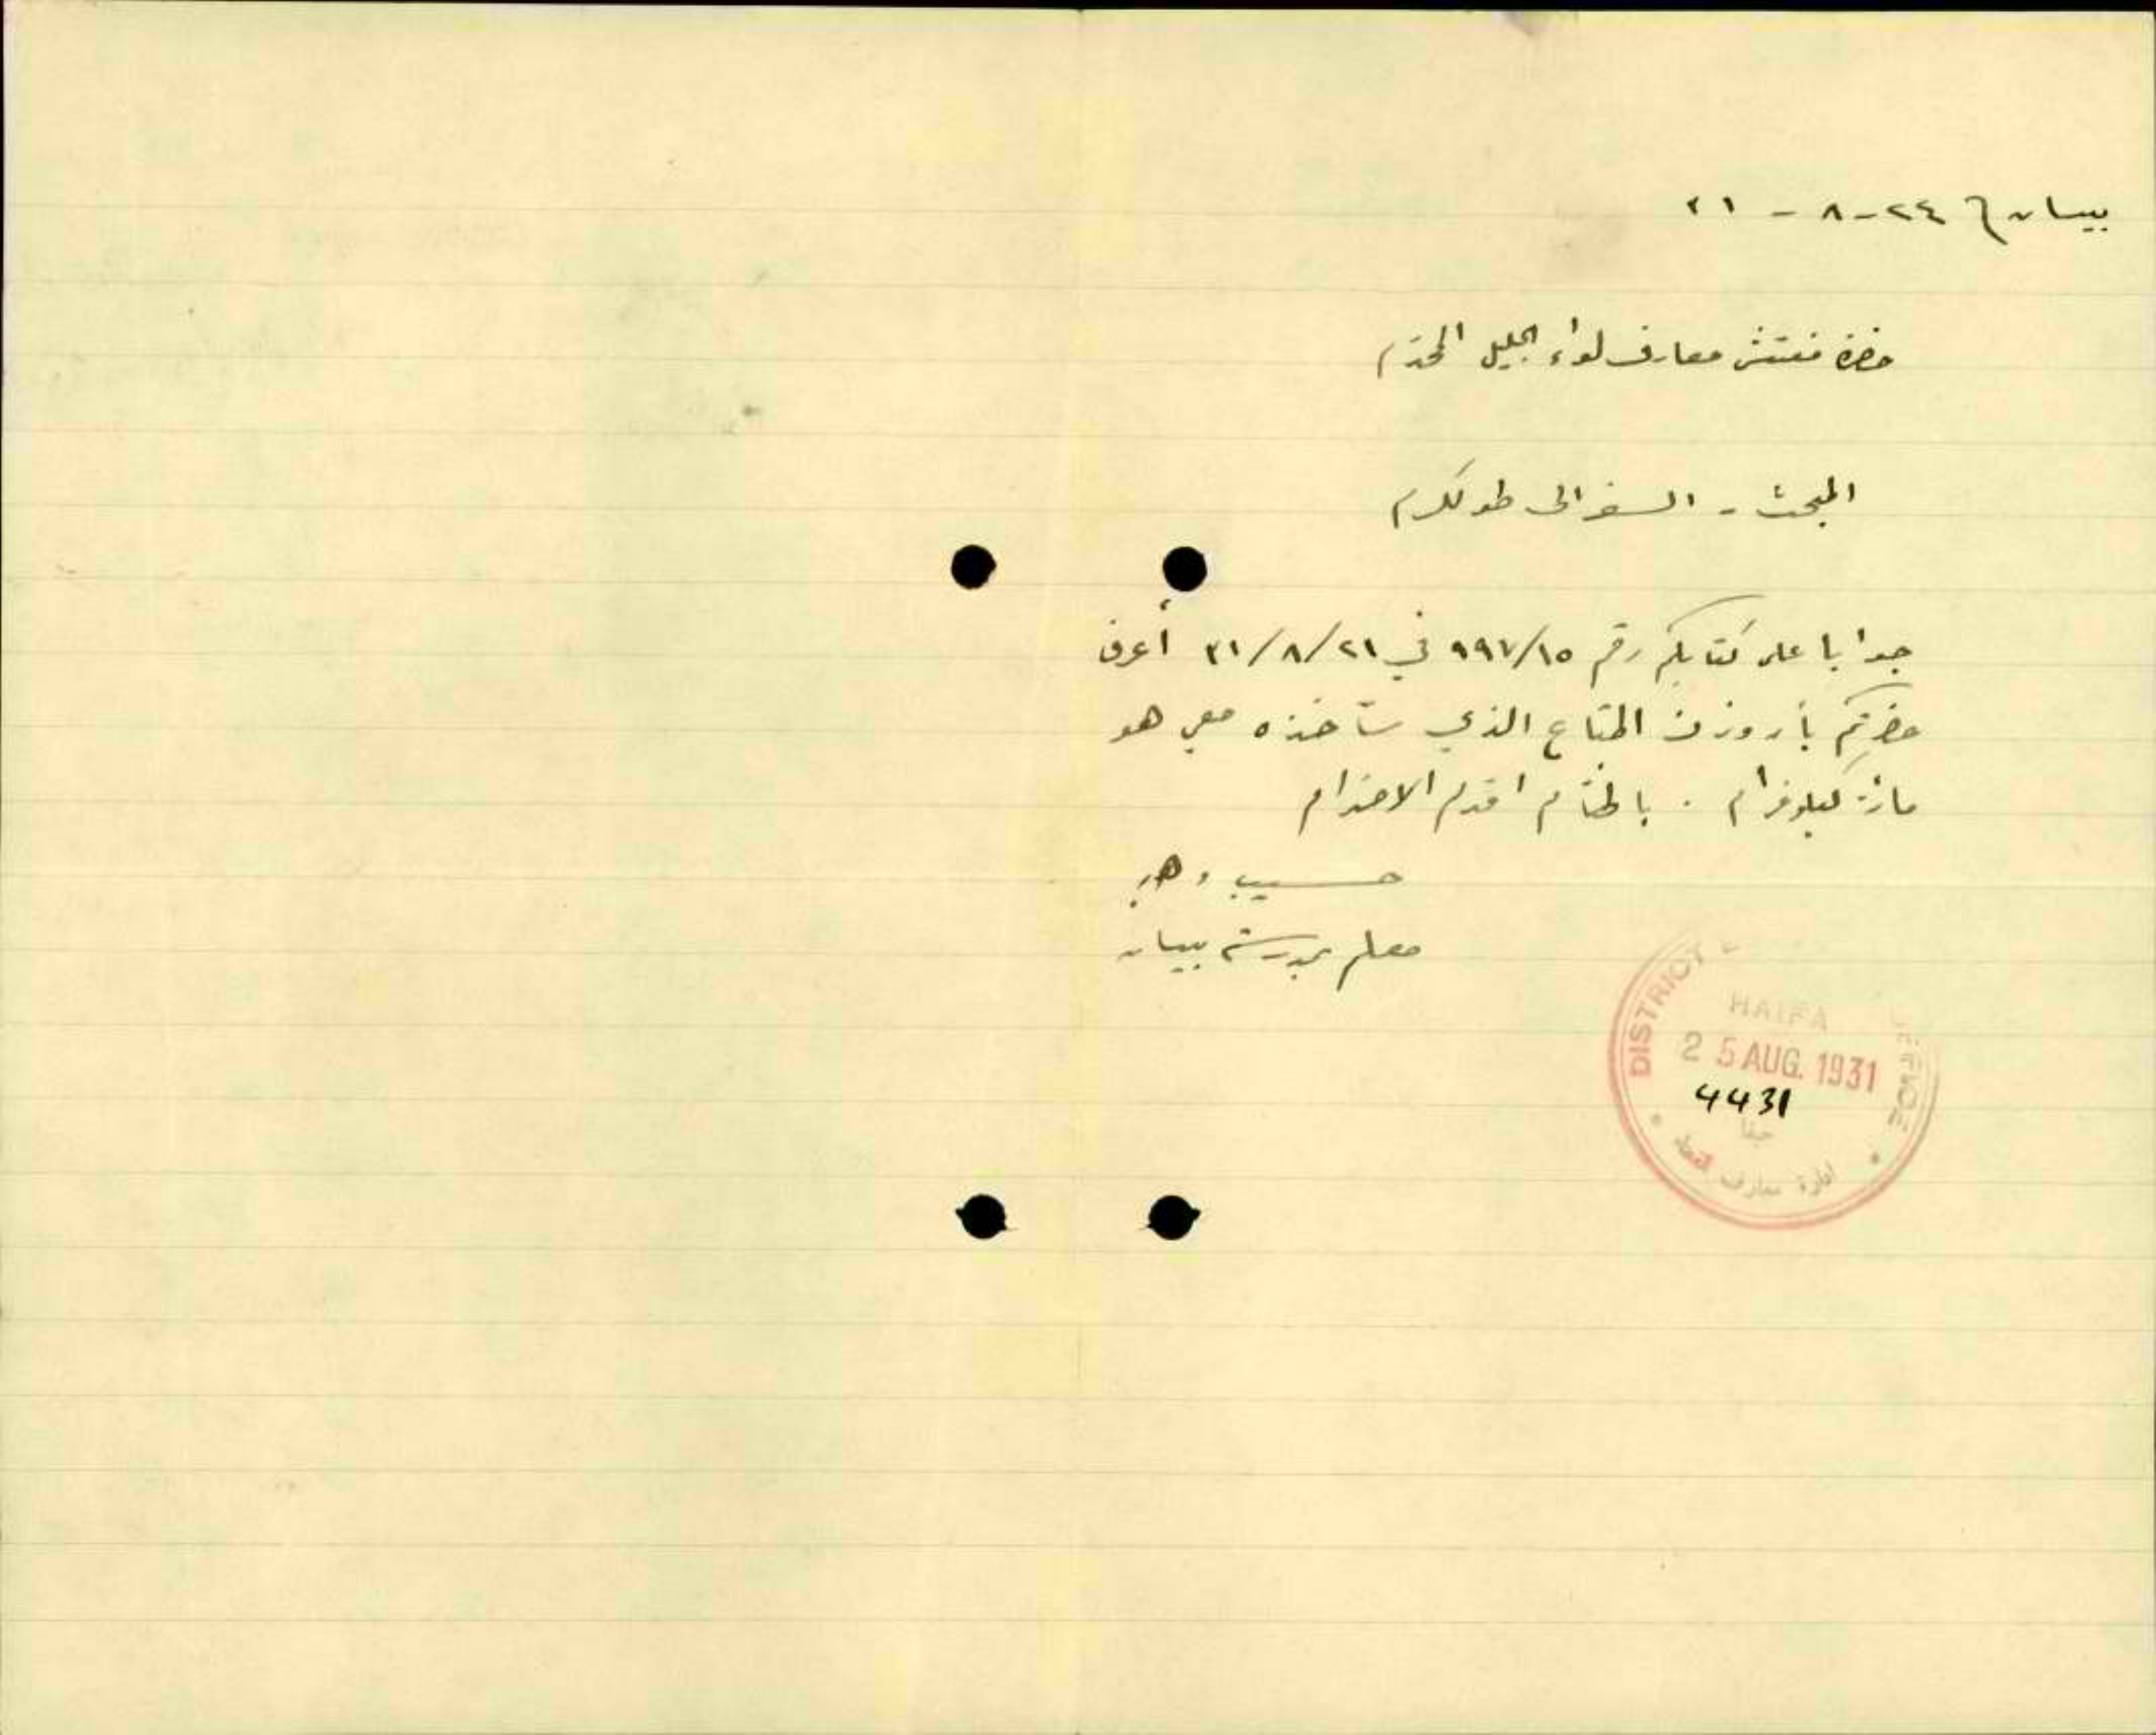 بيسان في ٢٤ - ٨ - ٣١
حضرة مفتش معارف لواء الجليل المحترم
المبحث - السفر الى طولكرم
جوابا على كتابكم رقم ٩٩٧/١٥ في ٣١/٨/٢١ أعرف
حضرتكم بأن وزن المتاع الذي سآخذه معي هو
مائة كيلوغرام . بالختام اقدم الاحترام
حسيب وهبه
معلم بمدرسة بيسان
DISTRICT
OFFICE
HAIFA
25 AUG. 1931
4431
حيفا
ادارة معارف القضاء